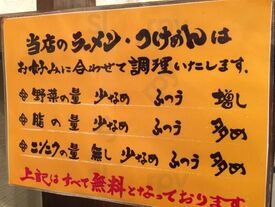 当店のラーメン・つけめんは
お好みに合わせて調理いたします。
野菜の量 少なめ ふつう 増し
脂の量 少なめ ふつう 多め
ニンニクの量 無し 少なめ ふつう 多め
上記はすべて無料となっております